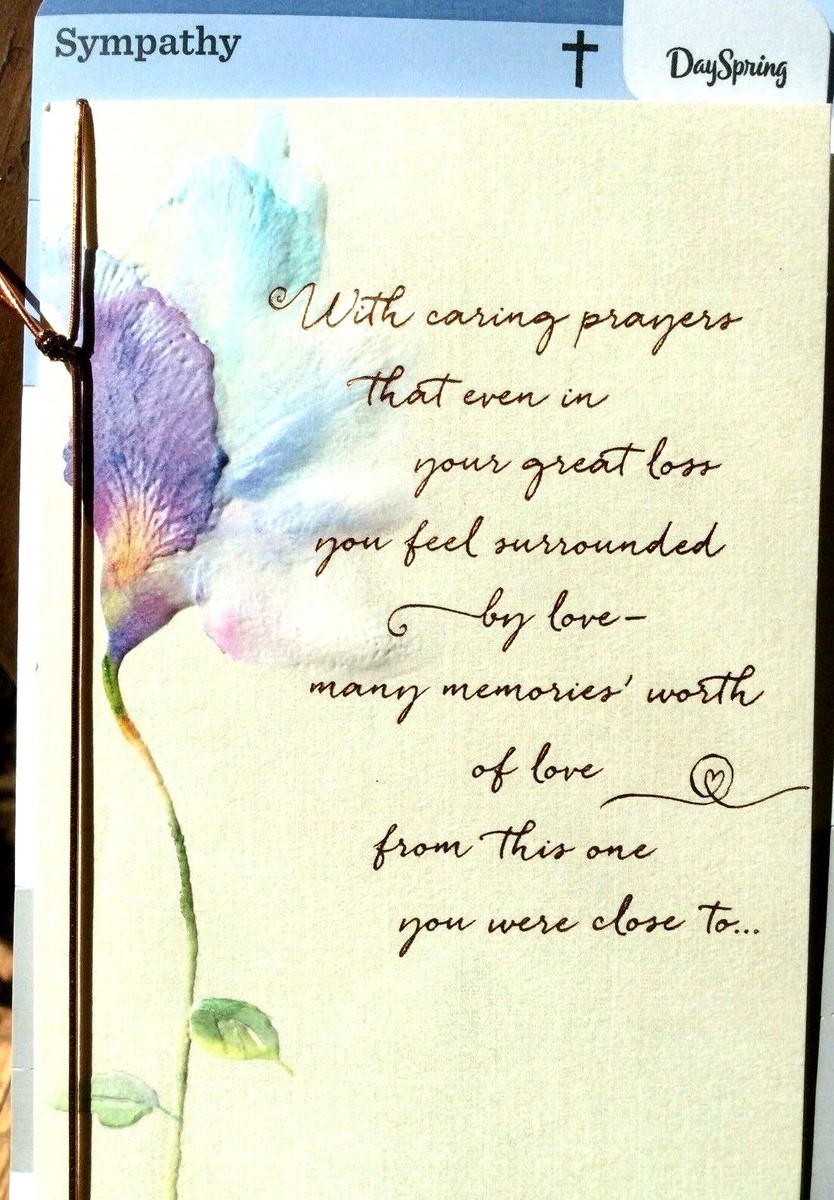 Sympathy
DaySpring
With caring prayers
that even in
your great loss
you feel surrounded
by love-
many memories' worth
of love
from this one
you were close to...